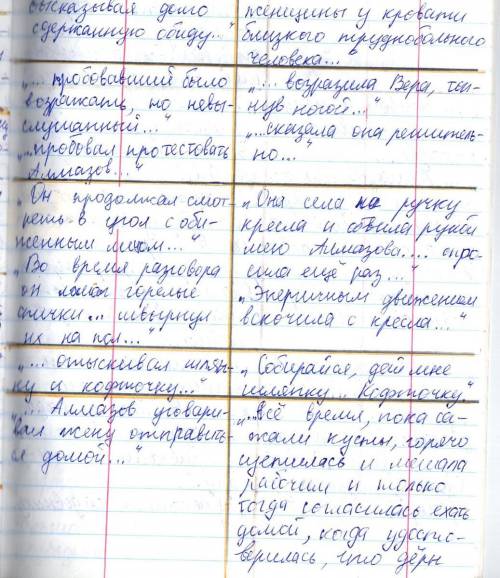 высказывая долго
сдержанную обиду..."
женщины у кровати
близкого труднобольного
человека..."
"... пробовавший было
возражать, но невы-
слушанный..."
"...пробовал протестовать
Алмазов..."
"... возразила Вера, топ-
нув ногой..."
"...сказала она решитель-
но..."
"Он продолжал смот-
реть в угол с оби-
женным лицом..."
"Во время разговора
он ломал горелые
спички... швырнул
их на пол..."
"Она села на ручку
кресла и обвила рукой
шею Алмазова.... спро-
сила ещё раз..."
"Энергичным движением
вскочила с кресла..."
"... отыскивал шляп-
ку и кофточку..."
"Собирайся, дай мне
шляпку.. Кофточку."
"... Алмазов уговари-
вал жену отправить-
ся домой..."
"...Всё время, пока са-
жали кусты, горячо
суетилась и мешала
рабочим и только
тогда согласилась ехать
домой, когда удосто-
верилась, что дёрн